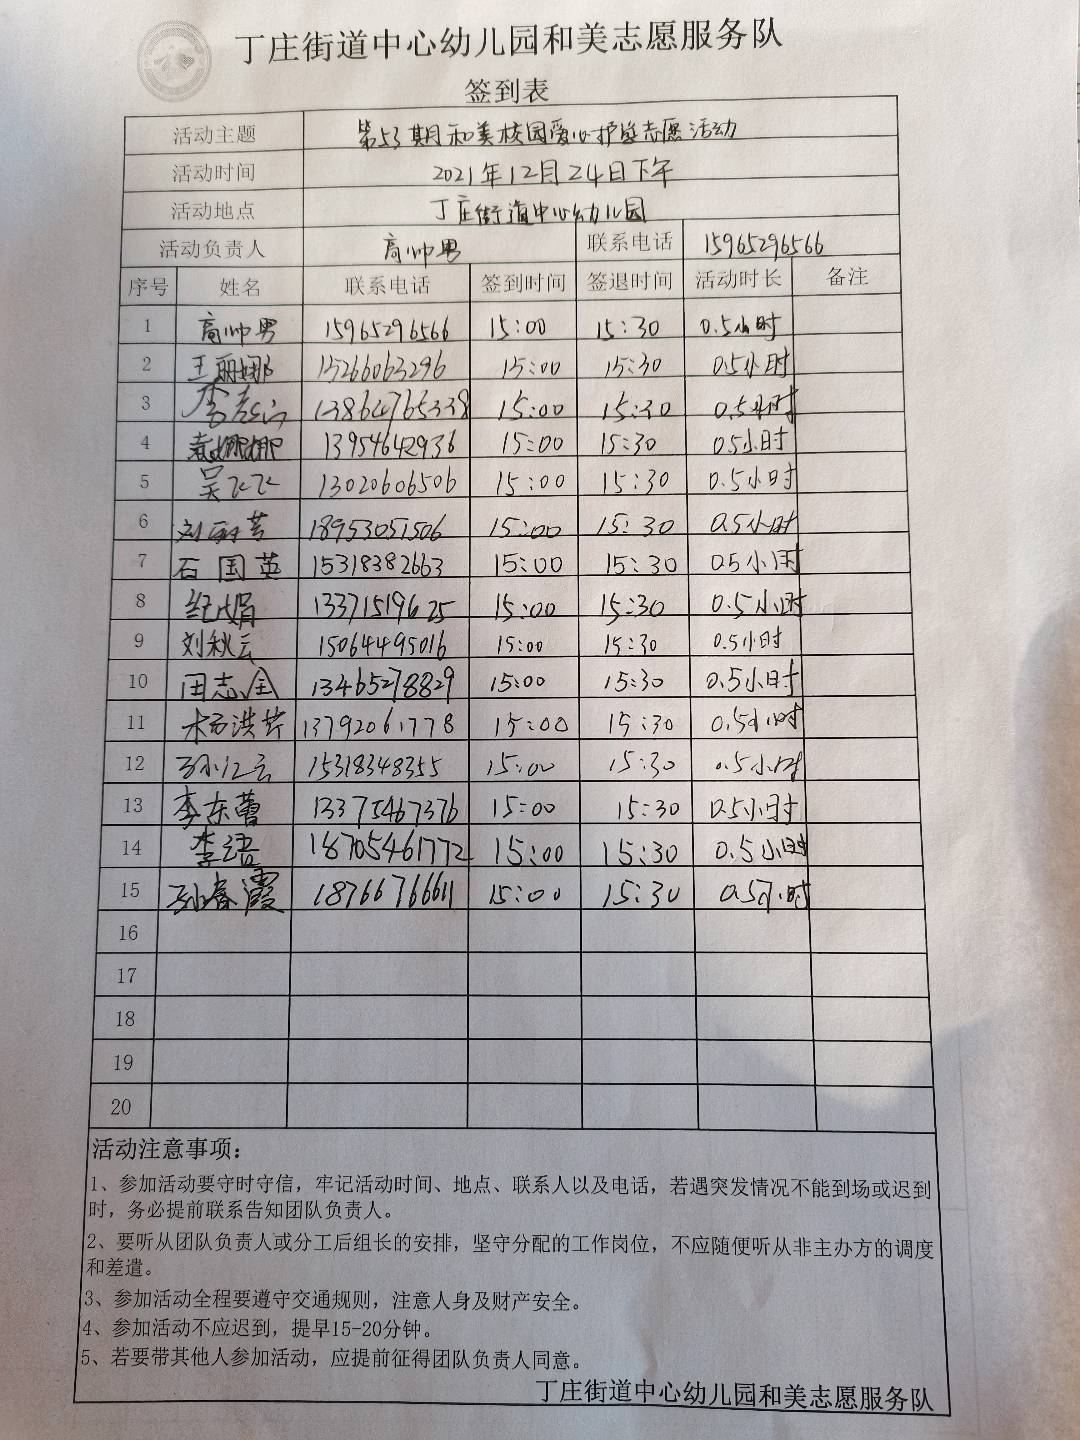 丁庄街道中心幼儿园和美志愿服务队
签到表
活动主题 第53期和美校园爱心护学志愿活动
活动时间 2021年12月24日下午
活动地点 丁庄街道中心幼儿园
活动负责人 高帅男 联系电话 15965296566
序号 姓名 联系电话 签到时间 签退时间 活动时长 备注
1 高帅男 15965296566 15:00 15:30 0.5小时
2 王丽娜 15266063296 15:00 15:30 0.5小时
3 李 13864765338 15:00 15:30 0.5小时
4 娜娜 13954642936 15:00 15:30 0.5小时
5 吴飞飞 13020606506 15:00 15:30 0.5小时
6 刘丽芳 18953051506 15:00 15:30 0.5小时
7 石国英 15318382663 15:00 15:30 0.5小时
8 纪娟 13371519625 15:00 15:30 0.5小时
9 刘秋云 15064495016 15:00 15:30 0.5小时
10 田志国 13465278829 15:00 15:30 0.5小时
11 杨洪芹 13792061778 15:00 15:30 0.5小时
12 孙红云 15318348355 15:00 15:30 0.5小时
13 李东蕾 13375467376 15:00 15:30 0.5小时
14 李语 18705461772 15:00 15:30 0.5小时
15 孙春霞 18766766611 15:00 15:30 0.5小时
16
17
18
19
20
活动注意事项：
1、参加活动要守时守信，牢记活动时间、地点、联系人以及电话，若遇突发情况不能到场或迟到
时，务必提前联系告知团队负责人。
2、要听从团队负责人或分工后组长的安排，坚守分配的工作岗位，不应随便听从非主办方的调度
和差遣。
3、参加活动全程要遵守交通规则，注意人身及财产安全。
4、参加活动不应迟到，提早15-20分钟。
5、若要带其他人参加活动，应提前征得团队负责人同意。
丁庄街道中心幼儿园和美志愿服务队